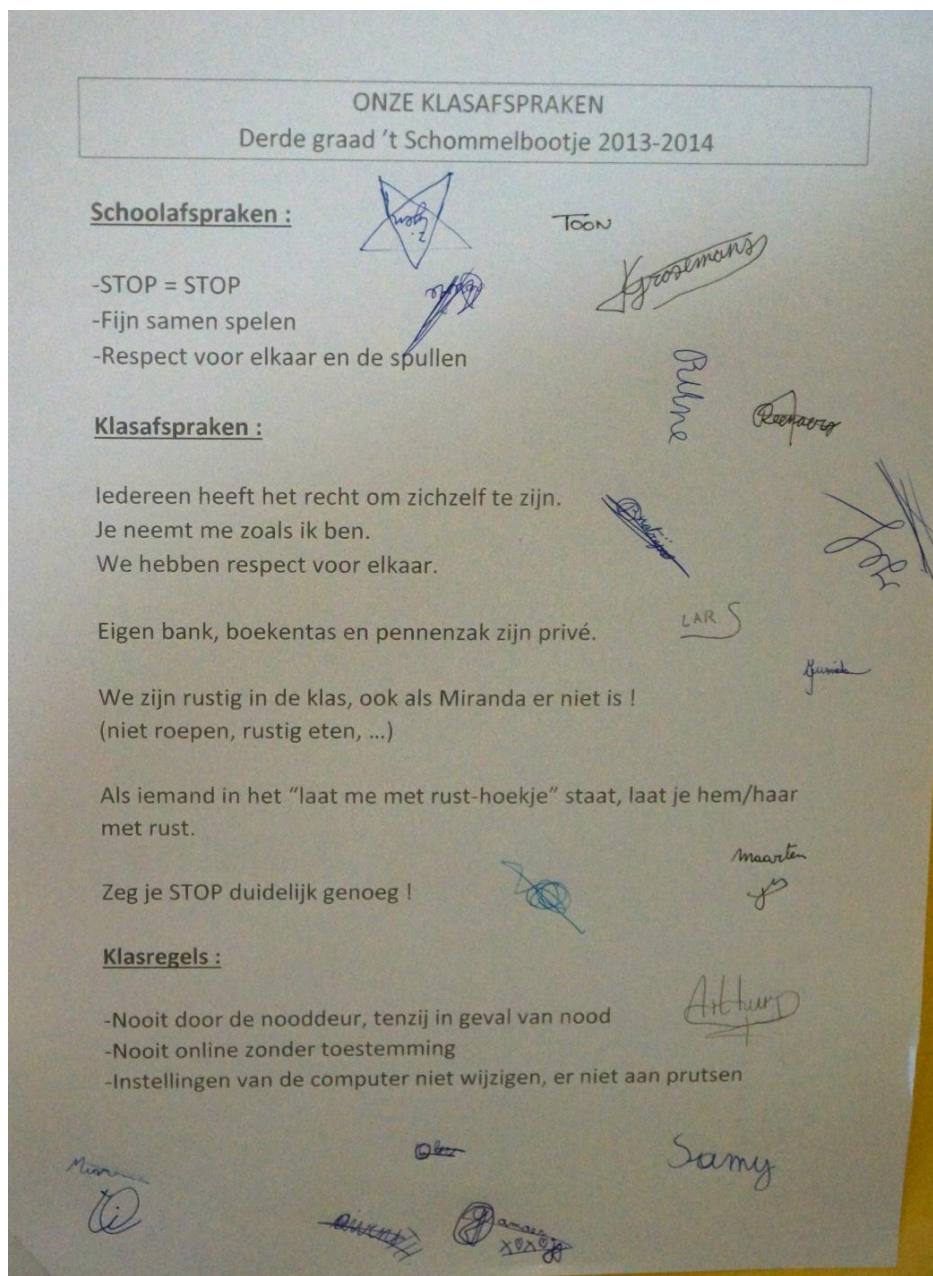 ONZE KLASAFSPRAKEN
Derde graad ’t Schommelbootje 2013-2014
Schoolafspraken :
TOON
Grosemans
-STOP = STOP
-Fijn samen spelen
-Respect voor elkaar en de spullen
Rune
Klasafspraken :
Iedereen heeft het recht om zichzelf te zijn.
Je neemt me zoals ik ben.
We hebben respect voor elkaar.
Eigen bank, boekentas en pennenzak zijn privé.
LARS
We zijn rustig in de klas, ook als Miranda er niet is !
(niet roepen, rustig eten, …)
Als iemand in het “laat me met rust-hoekje” staat, laat je hem/haar
met rust.
Maarten
Zeg je STOP duidelijk genoeg !
Klasregels :
Arthur
-Nooit door de nooddeur, tenzij in geval van nood
-Nooit online zonder toestemming
-Instellingen van de computer niet wijzigen, er niet aan prutsen
Samy